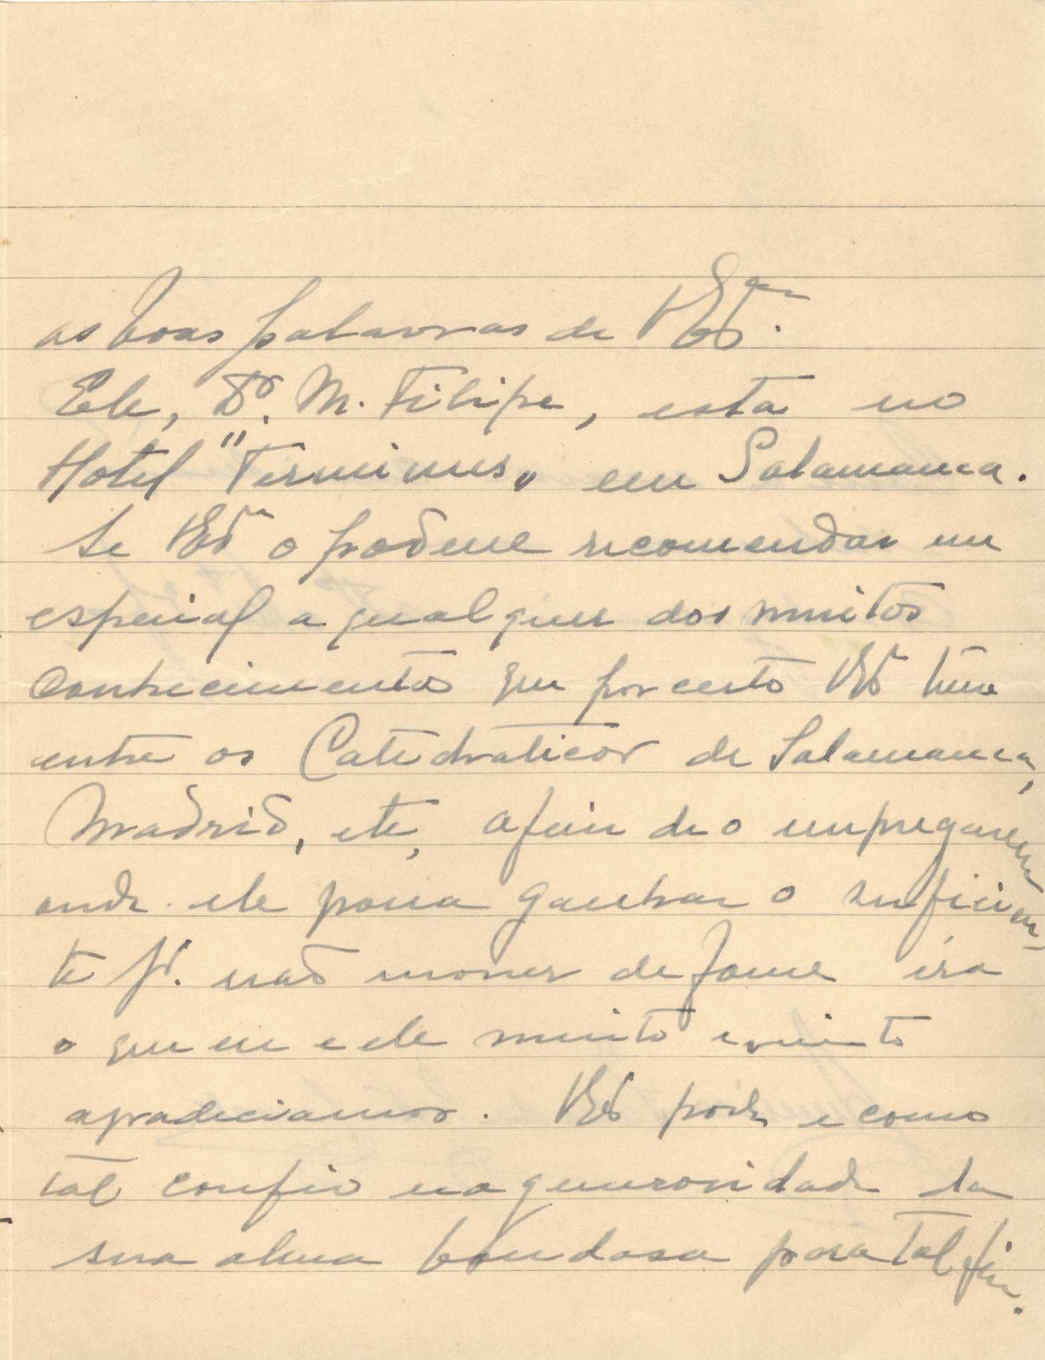 as boas palavras de VEx.cia
Ele, Dr. M. Filipe, esta no
Hotel "Terminus" em Salamanca.
Se VEx.a o podesse recomendar em
especial a qualquer dos muitos
conhecimentos que por certo VEx.a tem
entre os Catedraticos de Salamanca,
Madrid, etc, afim de o empregarem
onde ele possa ganhar o suficien-
te p.a não morrer de fome
o que eu e ele muito e muito
agradeciamos. VEx.a pode e como
tal confio na generosidade da
sua alma bondosa para tal fim.